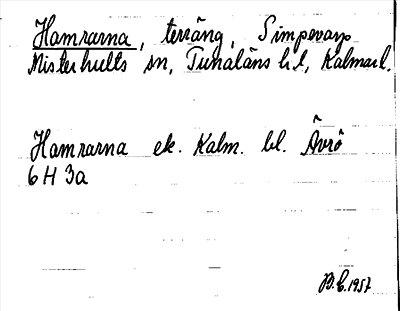 Hamrarna, terräng, Simpevarp
Misterhults sn, Tunaläns hd, Kalmar l.
Hamrarna ek. Kalm. bl. Ävrö
6 H 3a
1957